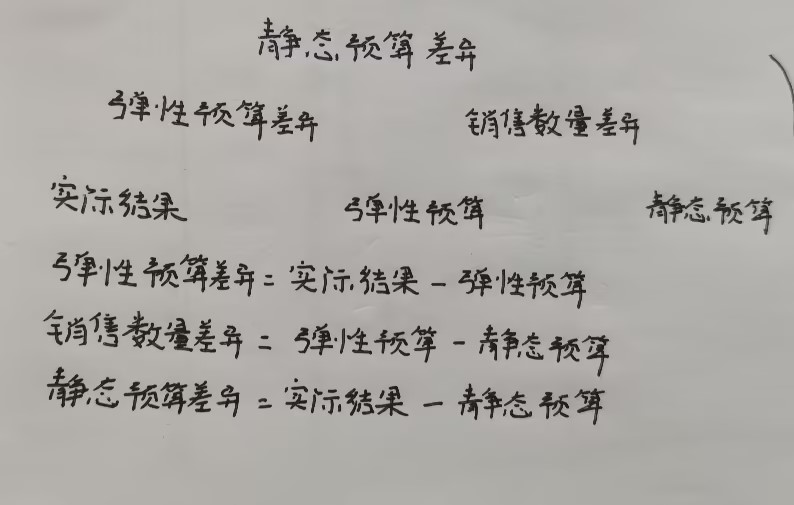 静态预算差异
弹性预算差异 销售数量差异
实际结果 弹性预算 静态预算
弹性预算差异 = 实际结果 - 弹性预算
销售数量差异 = 弹性预算 - 静态预算
静态预算差异 = 实际结果 - 静态预算